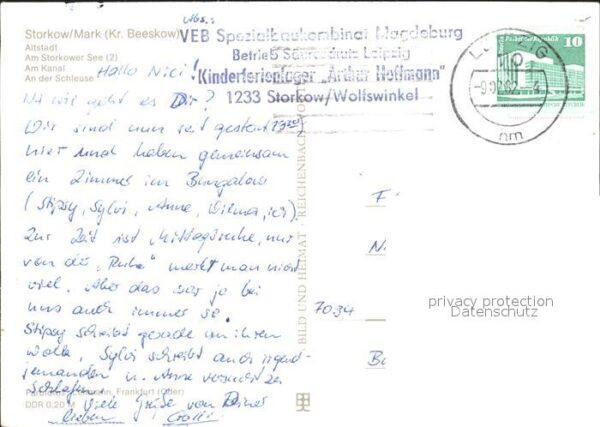 Abs.:
Storkow/Mark (Kr. Beeskow)
Altstadt
Am Storkower See (2)
Am Kanal
An der Schleuse
VEB Spezialbaukombinat Magdeburg
Betrieb Säureschutz Leipzig
Kinderferienlager „Arthur Hoffmann"
1233 Storkow/Wolfswinkel
LEIPZIG
10
-9.07.82-
nm
10
Hallo Nici!
Na wie geht es Dir?
Wir sind nun seit gestern 13 Uhr
hier und haben gemeinsam
ein Zimmer im Bungalow
(Stipsy, Sylvi, Anne, Wilma, ich).
Zur Zeit ist Mittagsruhe, nur
von der „Ruhe" merkt man nicht
viel. Aber das war ja bei
uns auch immer so.
Stipsy schreibt gerade an ihren
Sylvi schreibt auch irgend-
jemanden u. Anne versucht zu
schlafen.
Viele Grüße von Deiner
lieben
BILD UND HEIMAT · REICHENBACH
Frankfurt (Oder)
DDR 0,20 M
F
N
7034
B
privacy protection
Datenschutz